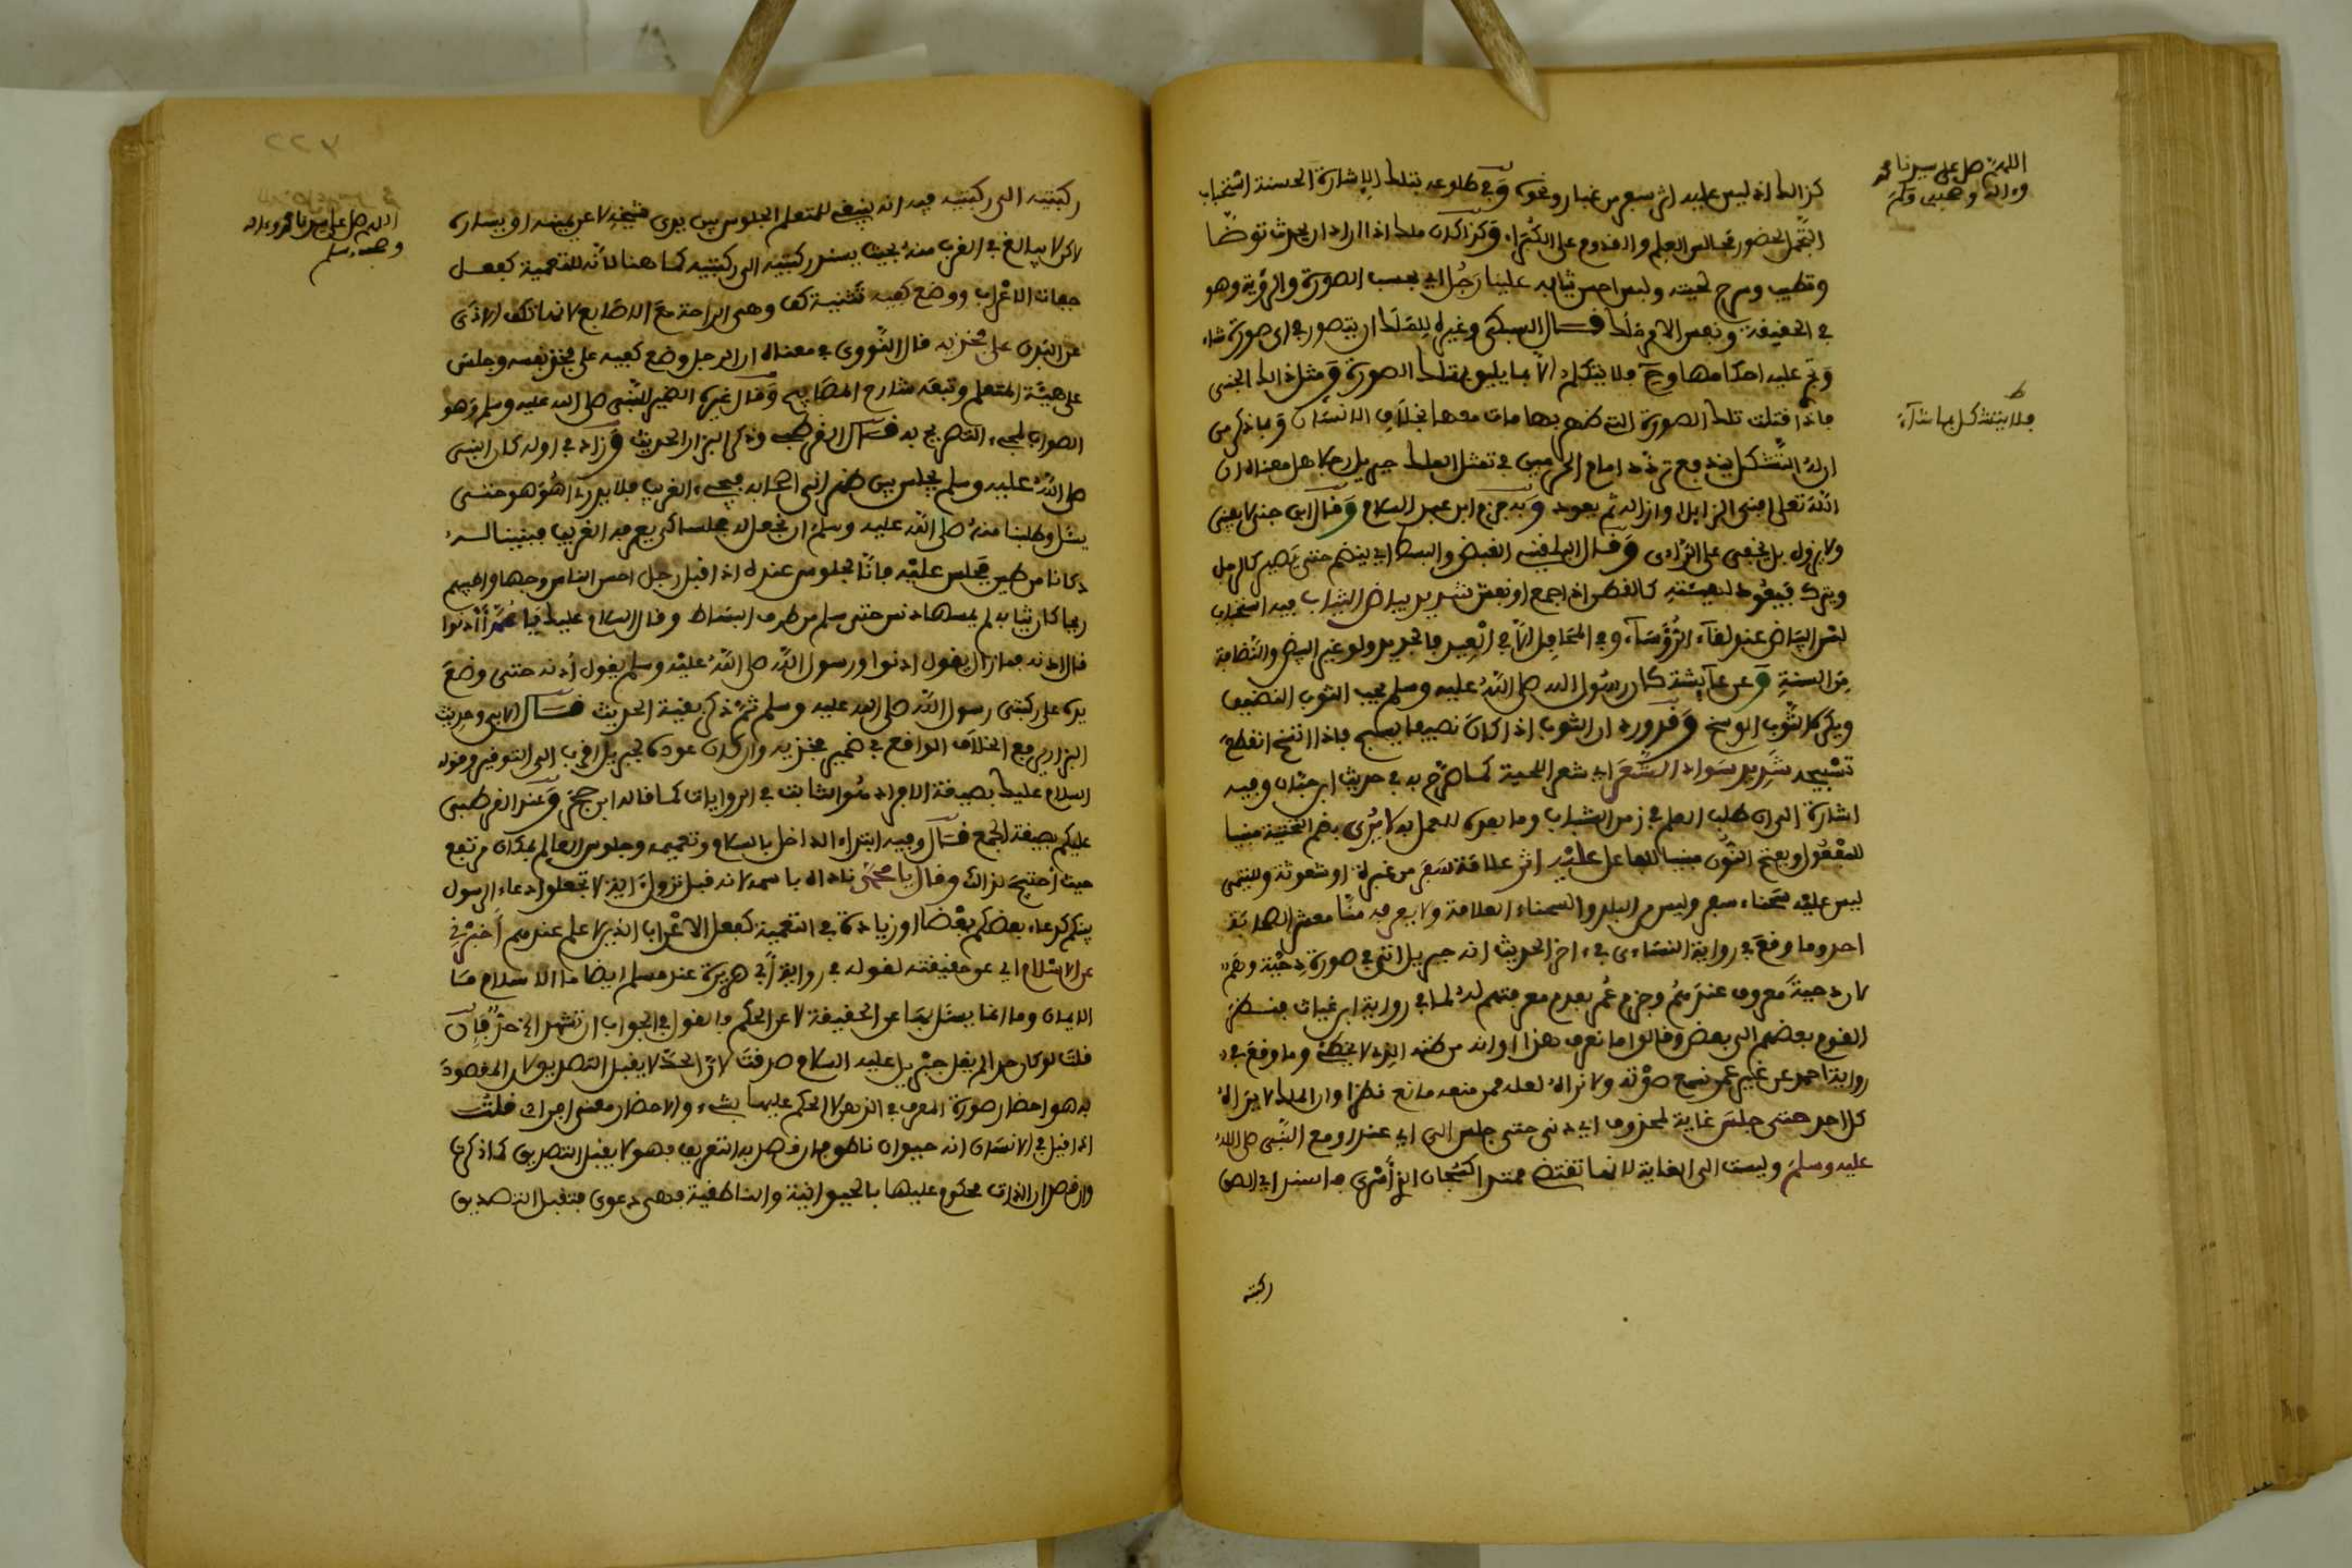 اللهم صل على سيدنا محمد
وءاله وصحبه وسلم
كذالك اذ ليس عليه اثر سفر من غبار ونحوه وفي طلوعه بتلك الإشارة الحسنة استحباب
التجمل لحضور مجالس العلم والقدوم على الكبراء وكذا كان ملك اذا اراد ان يحدث توضأ
وتطيب وسرح لحيته ولبس احسن ثيابه علينا رجل اي بحسب الصورة والرؤية وهو
في الحقيقة ونفس الامر ملك قال السبكي وغيره للملك ان يتصور في اي صورة شاء
فلا يتكلم الا بما يليق بتلك الصورة ومثل ذالك الجني
فلا يتشكل بما شاء
فاذا قتلت تلك الصورة التي ظهر بها مات معها بخلاف الانسان وما ذكر من
ان التشكل يندفع تردد امام الحرمين في تمثل الملك جبريل رجلا هل معناه ان
الله تعلى افنى الزايد او ازاله ثم يعود وبه جزم ابن عبد السلام وقال ابن حجر لا يفنى
ولا يزول بل يخفى على الرائي وقال البلقيني القبض والبسط اي ينضم حتى يصير كالرجل
ويترك فيعود لهيئته كالقطن اذا جمع او نفش شديد بياض الثياب فيه استحباب
لبس البياض عند لقاء الرؤساء وفي المحافل الا في العيد فالجديد ولو غير ابيض والنظافة
من السنة وعن عايشة كان رسول الله صلى الله عليه وسلم يحب الثوب النظيف
ويكره الثوب الوسخ وقد ورد ان الثوب اذا كان نظيفا يسبح فاذا اتسخ انقطع
تسبيحه شديد سواد الشعر اي شعر اللحية كما صرح به في حديث ابن حبان وفيه
اشارة الى ان طلب العلم في زمن الشباب وما بعده للعمل به لا يرى بضم التحتية مبنيا
للمفعول وبفتح النون مبنيا للفاعل عليه اثر علامة سفر من غبرة او شعوثة وللبيهقي
ليس عليه سحناء سفر وليس من البلد والسحناء العلامة ولا يعرفه منا معشر الصحابة
احد وما وقع في رواية النسائي في ءاخر الحديث انه جبريل اتى في صورة دحية وهم
لان دحية معروف عندهم وجزم عمر بعدم معرفتهم له لما في رواية ابن غياث فنظر
القوم بعضهم الى بعض وقالوا ما نعرف هذا او انه من ظنه الذي لا يخطئ وما وقع في
رواية احمد عن غير عمر نسمع صوته ولا نراه لعله ممن منعه مانع نظرا وان الملك لا يراه
كل احد حتى جلس غاية لمحذوف اي دنى حتى جلس الى اي عند او مع النبي صلى الله
عليه وسلم وليست الى الغاية لانها تقتضي ممتدا فاسند اي الصق
ركبتيه
اللهم صل على سيدنا محمد وءاله
وصحبه وسلم
ركبتيه الى ركبتيه فيه انه ينبغي للمتعلم الجلوس بين يدي شيخه لا عن يمينه او يساره
لاكن لا يبالغ في القرب منه بحيث يسند ركبتيه الى ركبتيه كما هنا لانه للتعمية كفعل
جفاة الاعراب ووضع كفيه تثنية كف وهي الراحة مع الاصابع لانها تكف الاذى
عن البدن على فخذيه قال النووي معناه ان الرجل وضع كفيه على فخذ نفسه وجلس
على هيئة المتعلم وتبعه شارح المصابيح وقال غيره الضمير للنبي صلى الله عليه وسلم وهو
الصواب لمجيء التصريح به قال القرطبي وذكر البزار الحديث وزاد في اوله كان النبي
صلى الله عليه وسلم يجلس بين ظهراني اصحابه فيجيء الغريب فلا يدري اهو هو حتى
يسئل وطلبنا منه صلى الله عليه وسلم ان نجعل له مجلسا كي يعرفه الغريب فبنينا له
دكانا من طين يجلس عليه فانا لجلوس عنده اذ اقبل رجل احسن الناس وجها واطيبهم
ريحا كان ثيابه لم يمسها دنس حتى سلم من طرف البساط وقال السلام عليك يا محمد أأدنوا
قال ادنه فما زال يقول ادنوا ورسول الله صلى الله عليه وسلم يقول أدنه حتى وضع
يده على ركبتي رسول الله صلى الله عليه وسلم ثم ذكر بقية الحديث قال الابي وحديث
البزار يرفع الخلاف الواقع في ضمير فخذيه وان كان عوده لجبريل اقرب الى التوقير وقوله
السلام عليك بصيغة الافراد هو الثابت في الروايات كما قاله ابن حجر وعند القرطبي
عليكم بصيغة الجمع قال وفيه ابتداء الداخل بالسلام وتعميمه وجلوس العالم بمكان مرتفع
حيث احتيج لذالك وقال يا محمد ناداه باسمه لانه قبل نزول اية لا تجعلوا دعاء الرسول
بينكم كدعاء بعضكم بعضا او زيادة في التعمية كفعل الاعراب الذين لا علم عندهم أخبرني
عن الاسلام اي عن حقيقته لقوله في رواية أبي هريرة عند مسلم ايضا ما الاسلام ما
الايمان وما انما يسئل بها عن الحقيقة لا عن الحكم فالقول في الجواب ان تشهد الخ حد فإن
قلت لو كان حدا لم يقل جبريل عليه السلام صدقت لان الحد لا يقبل التصديق لان المقصود
به هو احضار صورة المعرف في الذهن لا الحكم عليها بشيء والاحضار معنى افرادي قلت
اذا قيل في الانسان انه حيوان ناطق فان قصد به التعريف فهو لا يقبل التصديق كما ذكرت
وان قصد ان الذات محكوم عليها بالحيوانية والناطقية فهي دعوى فتقبل التصديق